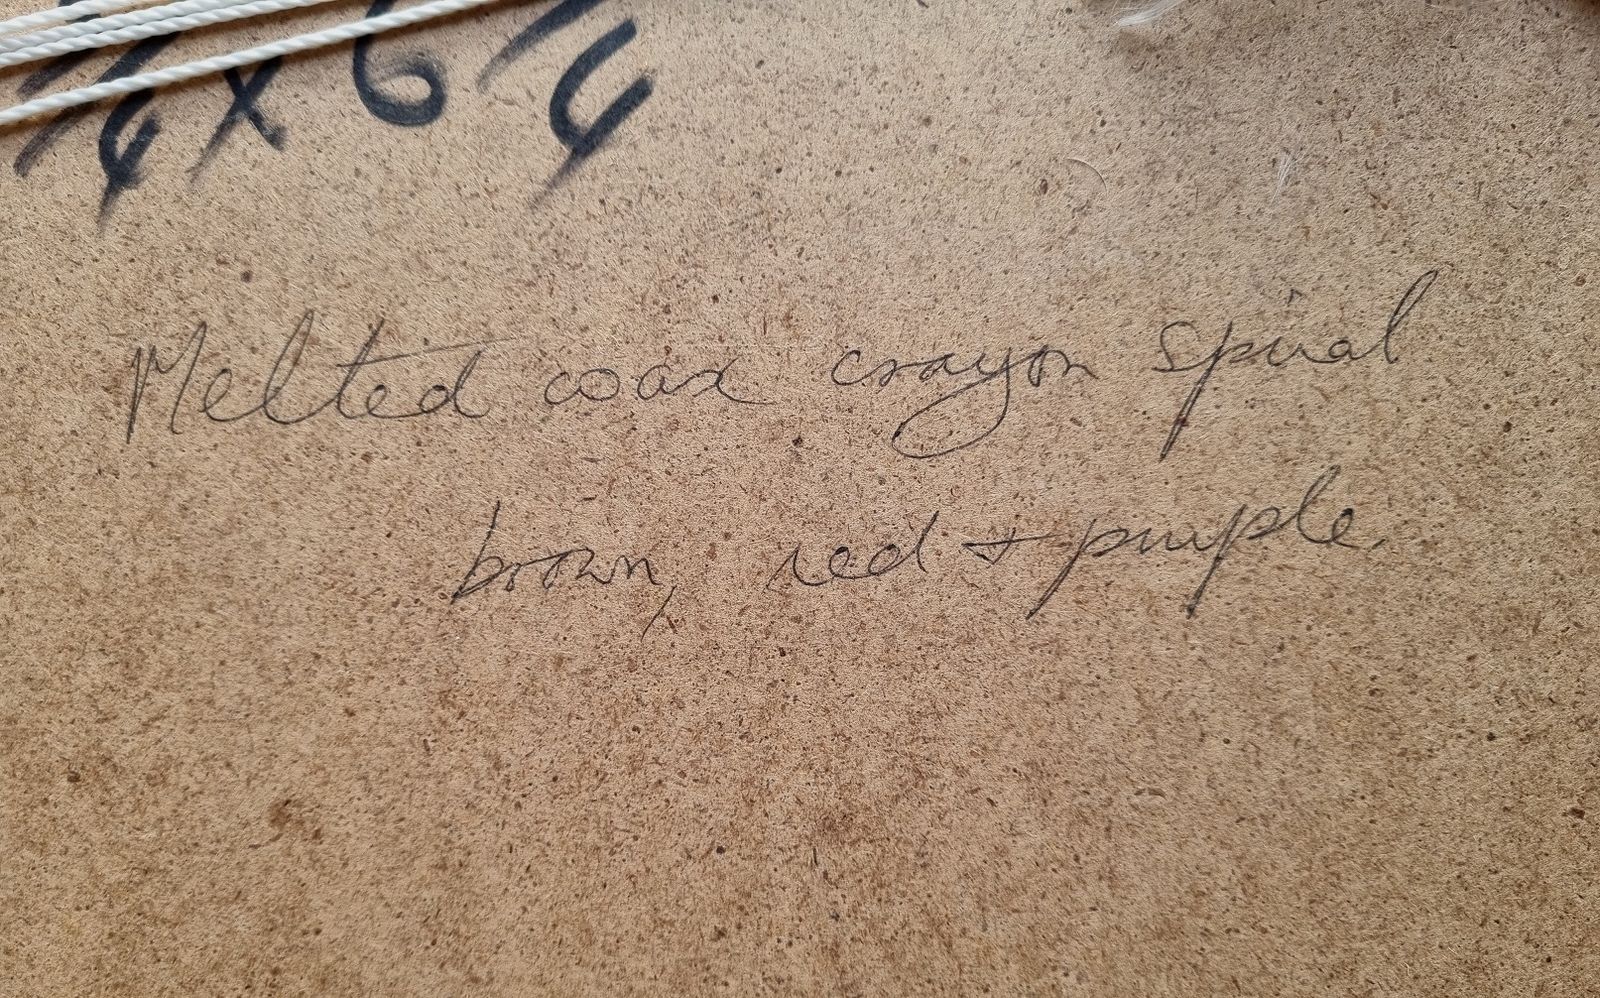 4 x 6 4
Melted wax crayon spiral
brown, red + purple.